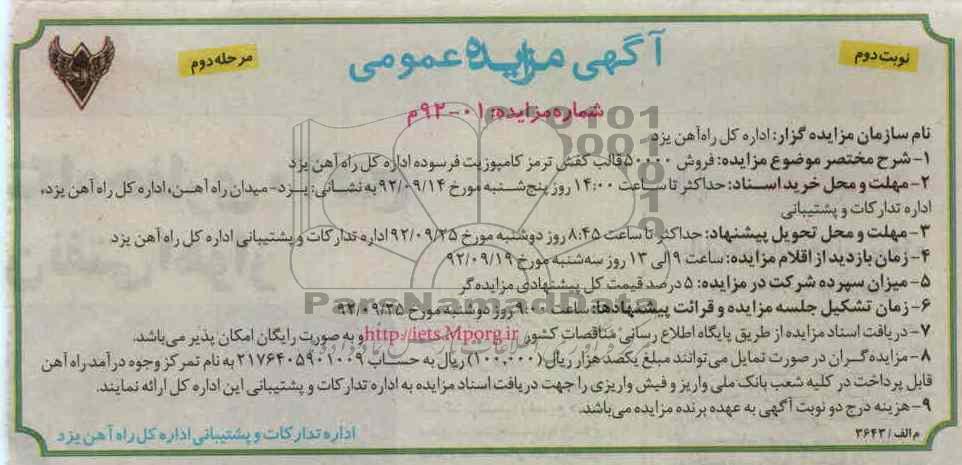 نوبت دوم
آگهی مزایده عمومی
مرحله دوم
شماره مزایده: ۰۱-۹۲م
نام سازمان مزایده گزار: اداره کل راه‌آهن یزد
۱- شرح مختصر موضوع مزایده: فروش ۵۰۰۰۰ قالب کفش ترمز کامپوزیت فرسوده اداره کل راه آهن یزد
۲- مهلت و محل خرید اسناد: حداکثر تا ساعت ۱۴:۰۰ روز پنج‌شنبه مورخ ۹۲/۰۹/۱۴ به نشانی: یزد- میدان راه آهن، اداره کل راه آهن یزد،
اداره تدارکات و پشتیبانی
۳- مهلت و محل تحویل پیشنهاد: حداکثر تا ساعت ۸:۴۵ روز دوشنبه مورخ ۹۲/۰۹/۲۵ اداره تدارکات و پشتیبانی اداره کل راه آهن یزد
۴- زمان بازدید از اقلام مزایده: ساعت ۹ الی ۱۳ روز سه‌شنبه مورخ ۹۲/۰۹/۱۹
۵- میزان سپرده شرکت در مزایده: ۵ درصد قیمت کل پیشنهادی مزایده‌گر
۶- زمان تشکیل جلسه مزایده و قرائت پیشنهادها: ساعت ۹:۰۰ روز دوشنبه مورخ ۹۲/۰۹/۲۵
۷- دریافت اسناد مزایده از طریق پایگاه اطلاع رسانی مناقصات کشور http://iets.Mporg.ir و به صورت رایگان امکان پذیر می‌باشد.
۸- مزایده‌گران در صورت تمایل می‌توانند مبلغ یکصد هزار ریال (۱۰۰,۰۰۰) ریال به حساب ۲۱۷۶۴۰۵۹۰۱۰۰۹ به نام تمرکز وجوه درآمد راه آهن
قابل پرداخت در کلیه شعب بانک ملی واریز و فیش واریزی را جهت دریافت اسناد مزایده به اداره تدارکات و پشتیبانی این اداره کل ارائه نمایند.
۹- هزینه درج دو نوبت آگهی به عهده برنده مزایده می‌باشد.
م الف / ۳۶۴۳
اداره تدارکات و پشتیبانی اداره کل راه آهن یزد
ParsNamadData